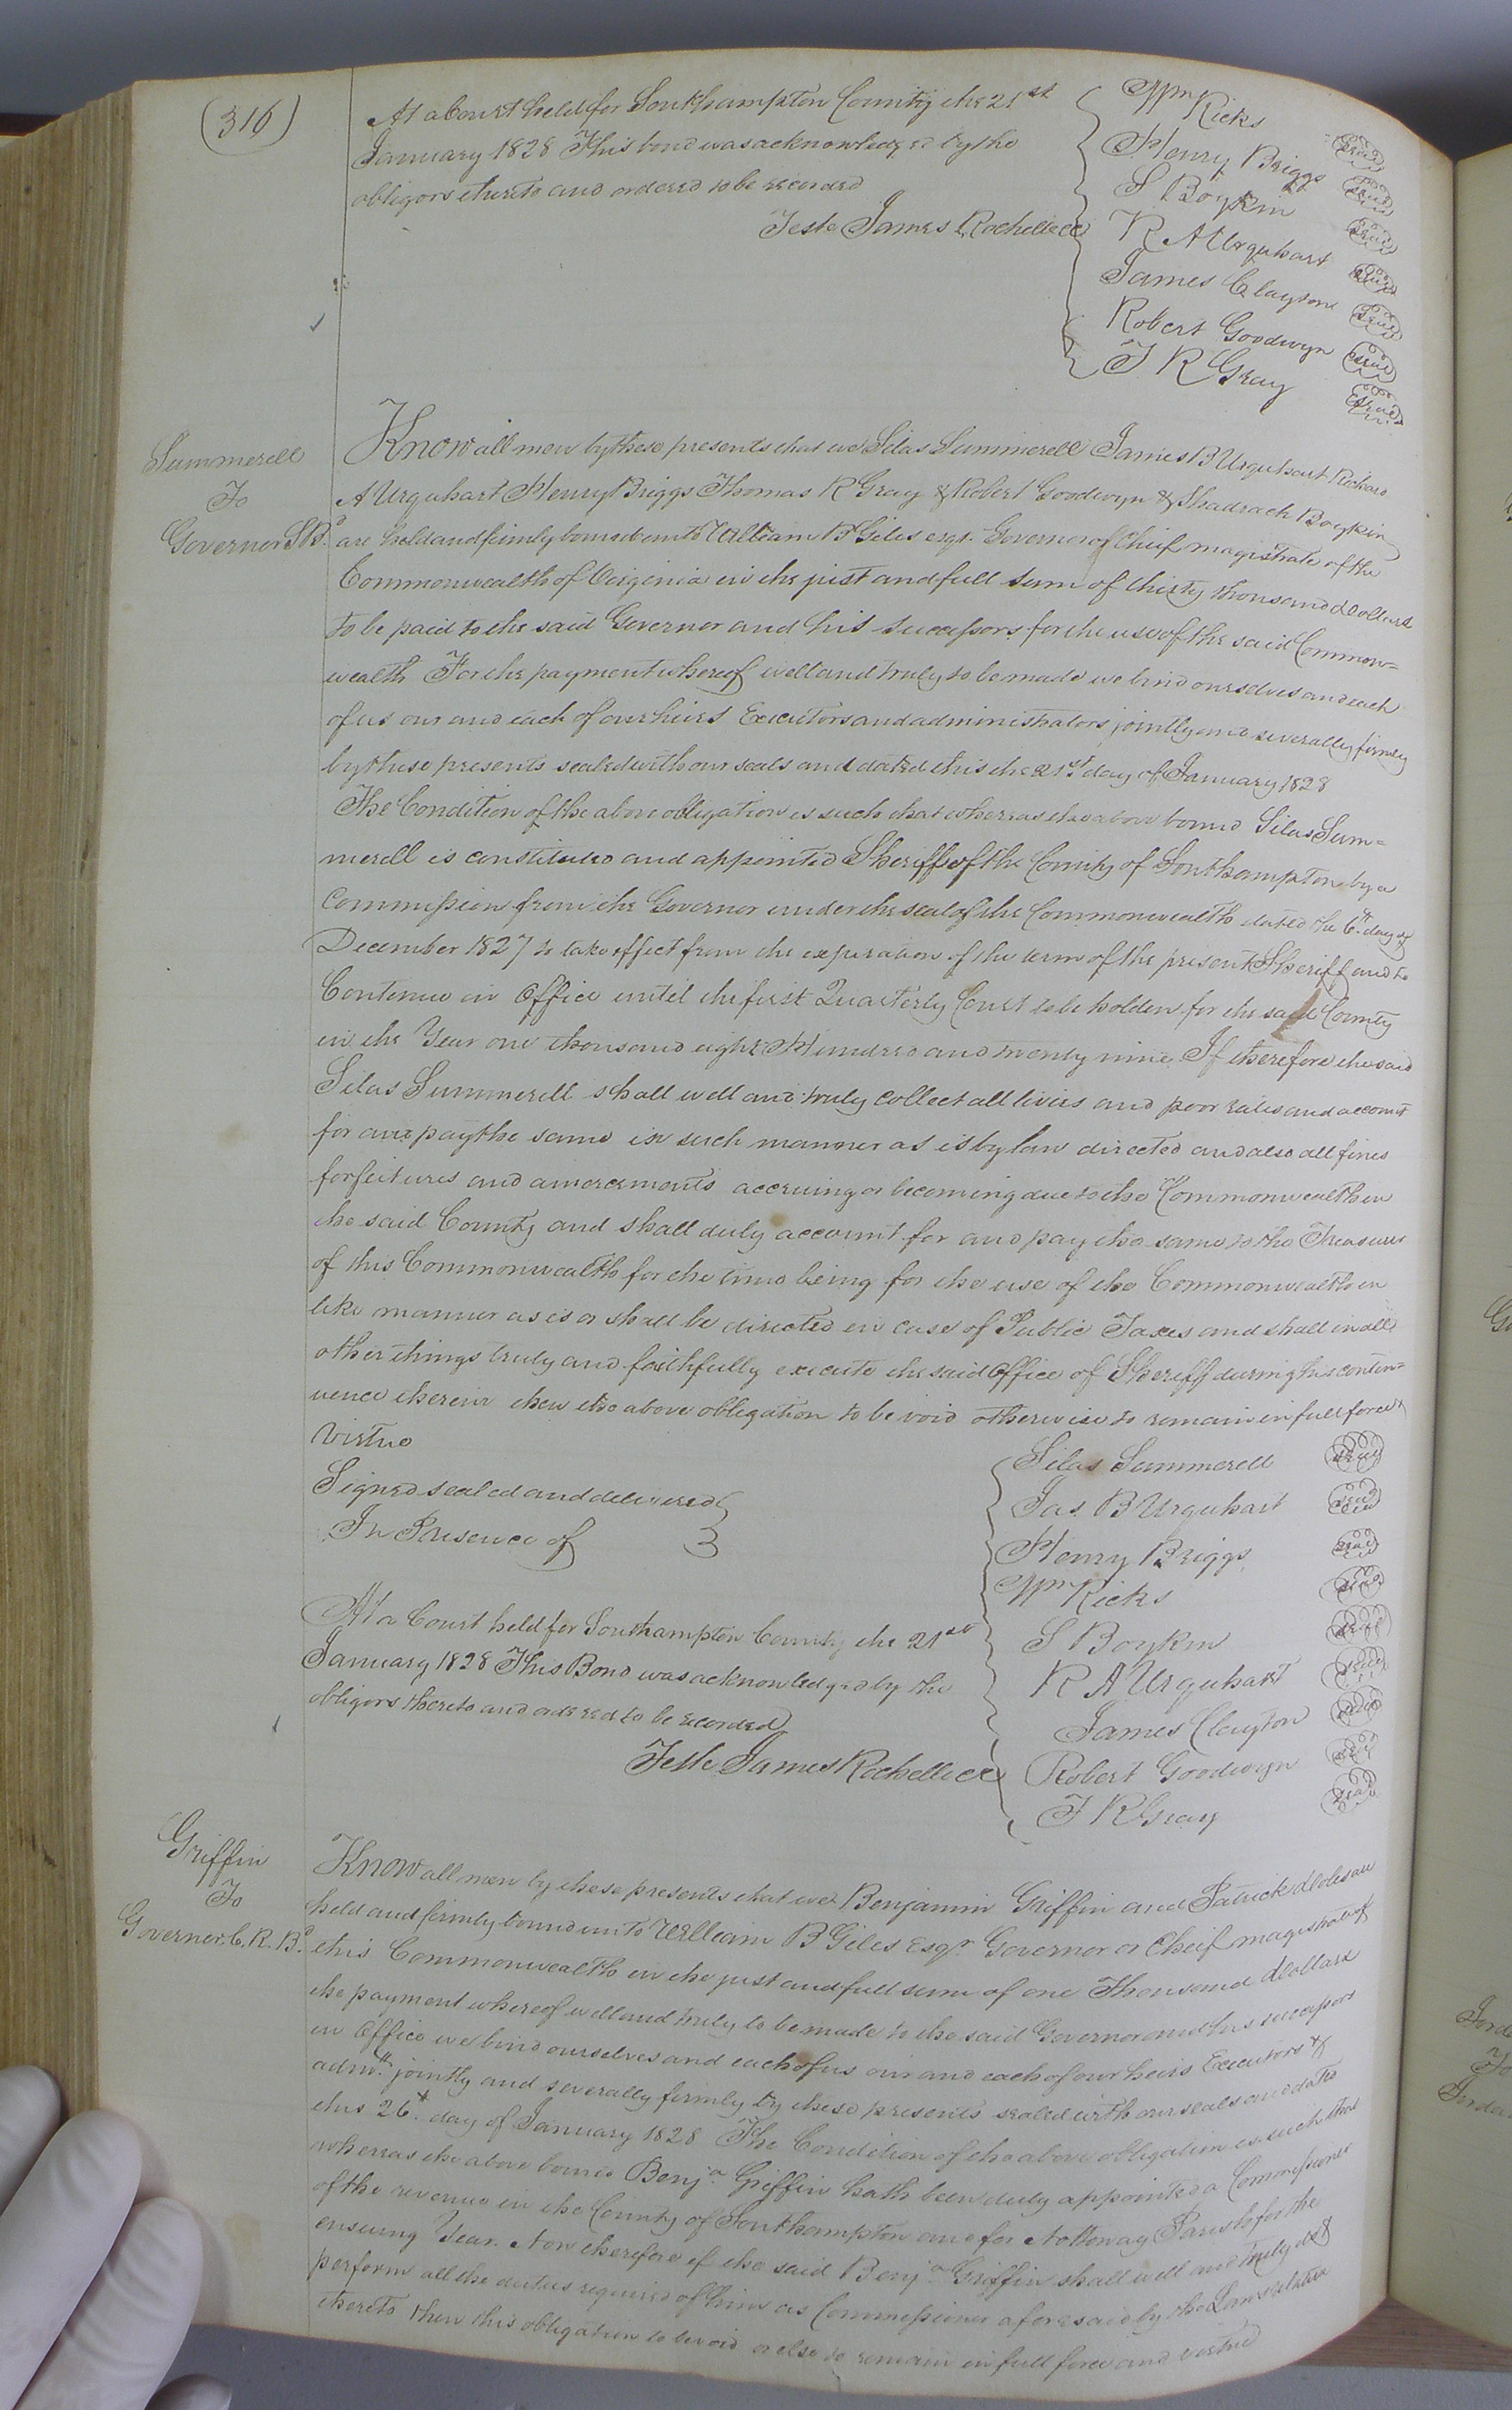 (316)
At a Court held for Southampton County the 21st
January 1828 This bond was acknowledged by the
obligors thereto and ordered to be recorded
Teste James Rochelle CC
Wm Ricks
Henry Briggs seal
S Boykin seal
R A Urquhart seal
James Clayton seal
Robert Goodwyn seal
T R Gray seal
seal
Summerell
To
Governor S Bd.
Know all men by these presents that we Silas Summerell James B Urquhart Richard
A Urquhart Henry Briggs Thomas R Gray & Robert Goodwyn & Shadrack Boykin
are held and firmly bound unto William B Giles esqr. Governor of Chief magistrate of the
Commonwealth of Virginia in the just and full sum of thirty thousand dollars
to be paid to the said Governor and his successors for the use of the said Common=
wealth For the payment whereof well and truly to be made we bind ourselves and each
of us our and each of our heirs Executors and administrators jointly and severally firmly
by these presents sealed with our seals and dated this the 21st day of January 1828
The Condition of the above obligation is such that whereas the above bound Silas Sum=
merell is constituted and appointed Sheriff of the County of Southampton by a
Commission from the Governor under the seal of the Commonwealth dated the 6th day of
December 1827 to take effect from the expiration of the term of the present Sheriff and to
Continue in Office until the first Quarterly Court to be holden for the said County
in the Year one thousand eight Hundred and twenty nine. If therefore the said
Silas Summerell shall well and truly collect all levies and poor rates and account
for and pay the same in such manner as is by law directed and also all fines
forfeitures and amercements accruing or becoming due to the Commonwealth in
the said County and shall duly account for and pay the same to the Treasurer
of this Commonwealth for the time being for the use of the Commonwealth in
like manner as is or shall be directed in case of Public Taxes and shall in all
other things truly and faithfully execute the said Office of Sheriff during his contin=
uence therein then the above obligation to be void otherwise to remain in full force &
Virtue
Signed sealed and delivered
In Presence of
Silas Summerell seal
Jas B Urquhart seal
Henry Briggs seal
Wm Ricks seal
S Boykin seal
R A Urquhart seal
James Clayton seal
Robert Goodwyn seal
T R Gray seal
At a Court held for Southampton County the 21st
January 1828 This Bond was acknowledged by the
obligors thereto and ordered to be recorded
Teste James Rochelle CC
Griffin
To
Governor C. R. Bd.
Know all men by these presents that we Benjamin Griffin and Patrick are
held and firmly bound unto William B Giles Esqr. Governor or Cheif magistrate of
this Commonwealth in the just and full sum of one Thousand dollars
the payment whereof well and truly to be made to the said Governor and his successors
in Office we bind ourselves and each of us our and each of our heirs Executors &
admrs. jointly and severally firmly by these presents sealed with our seals and dated
this 26th. day of January 1828 The Condition of the above obligation is such that
whereas the above bound Benja Griffin hath been duly appointed a Commissioner
of the revenue in the County of Southampton and for Nottoway Parish for the
ensuing Year. Now therefore if the said Benja Griffin shall well and truly do &
perform all the duties required of him as Commissioner aforesaid by the Laws relative
thereto then this obligation to be void or else to remain in full force and virtue